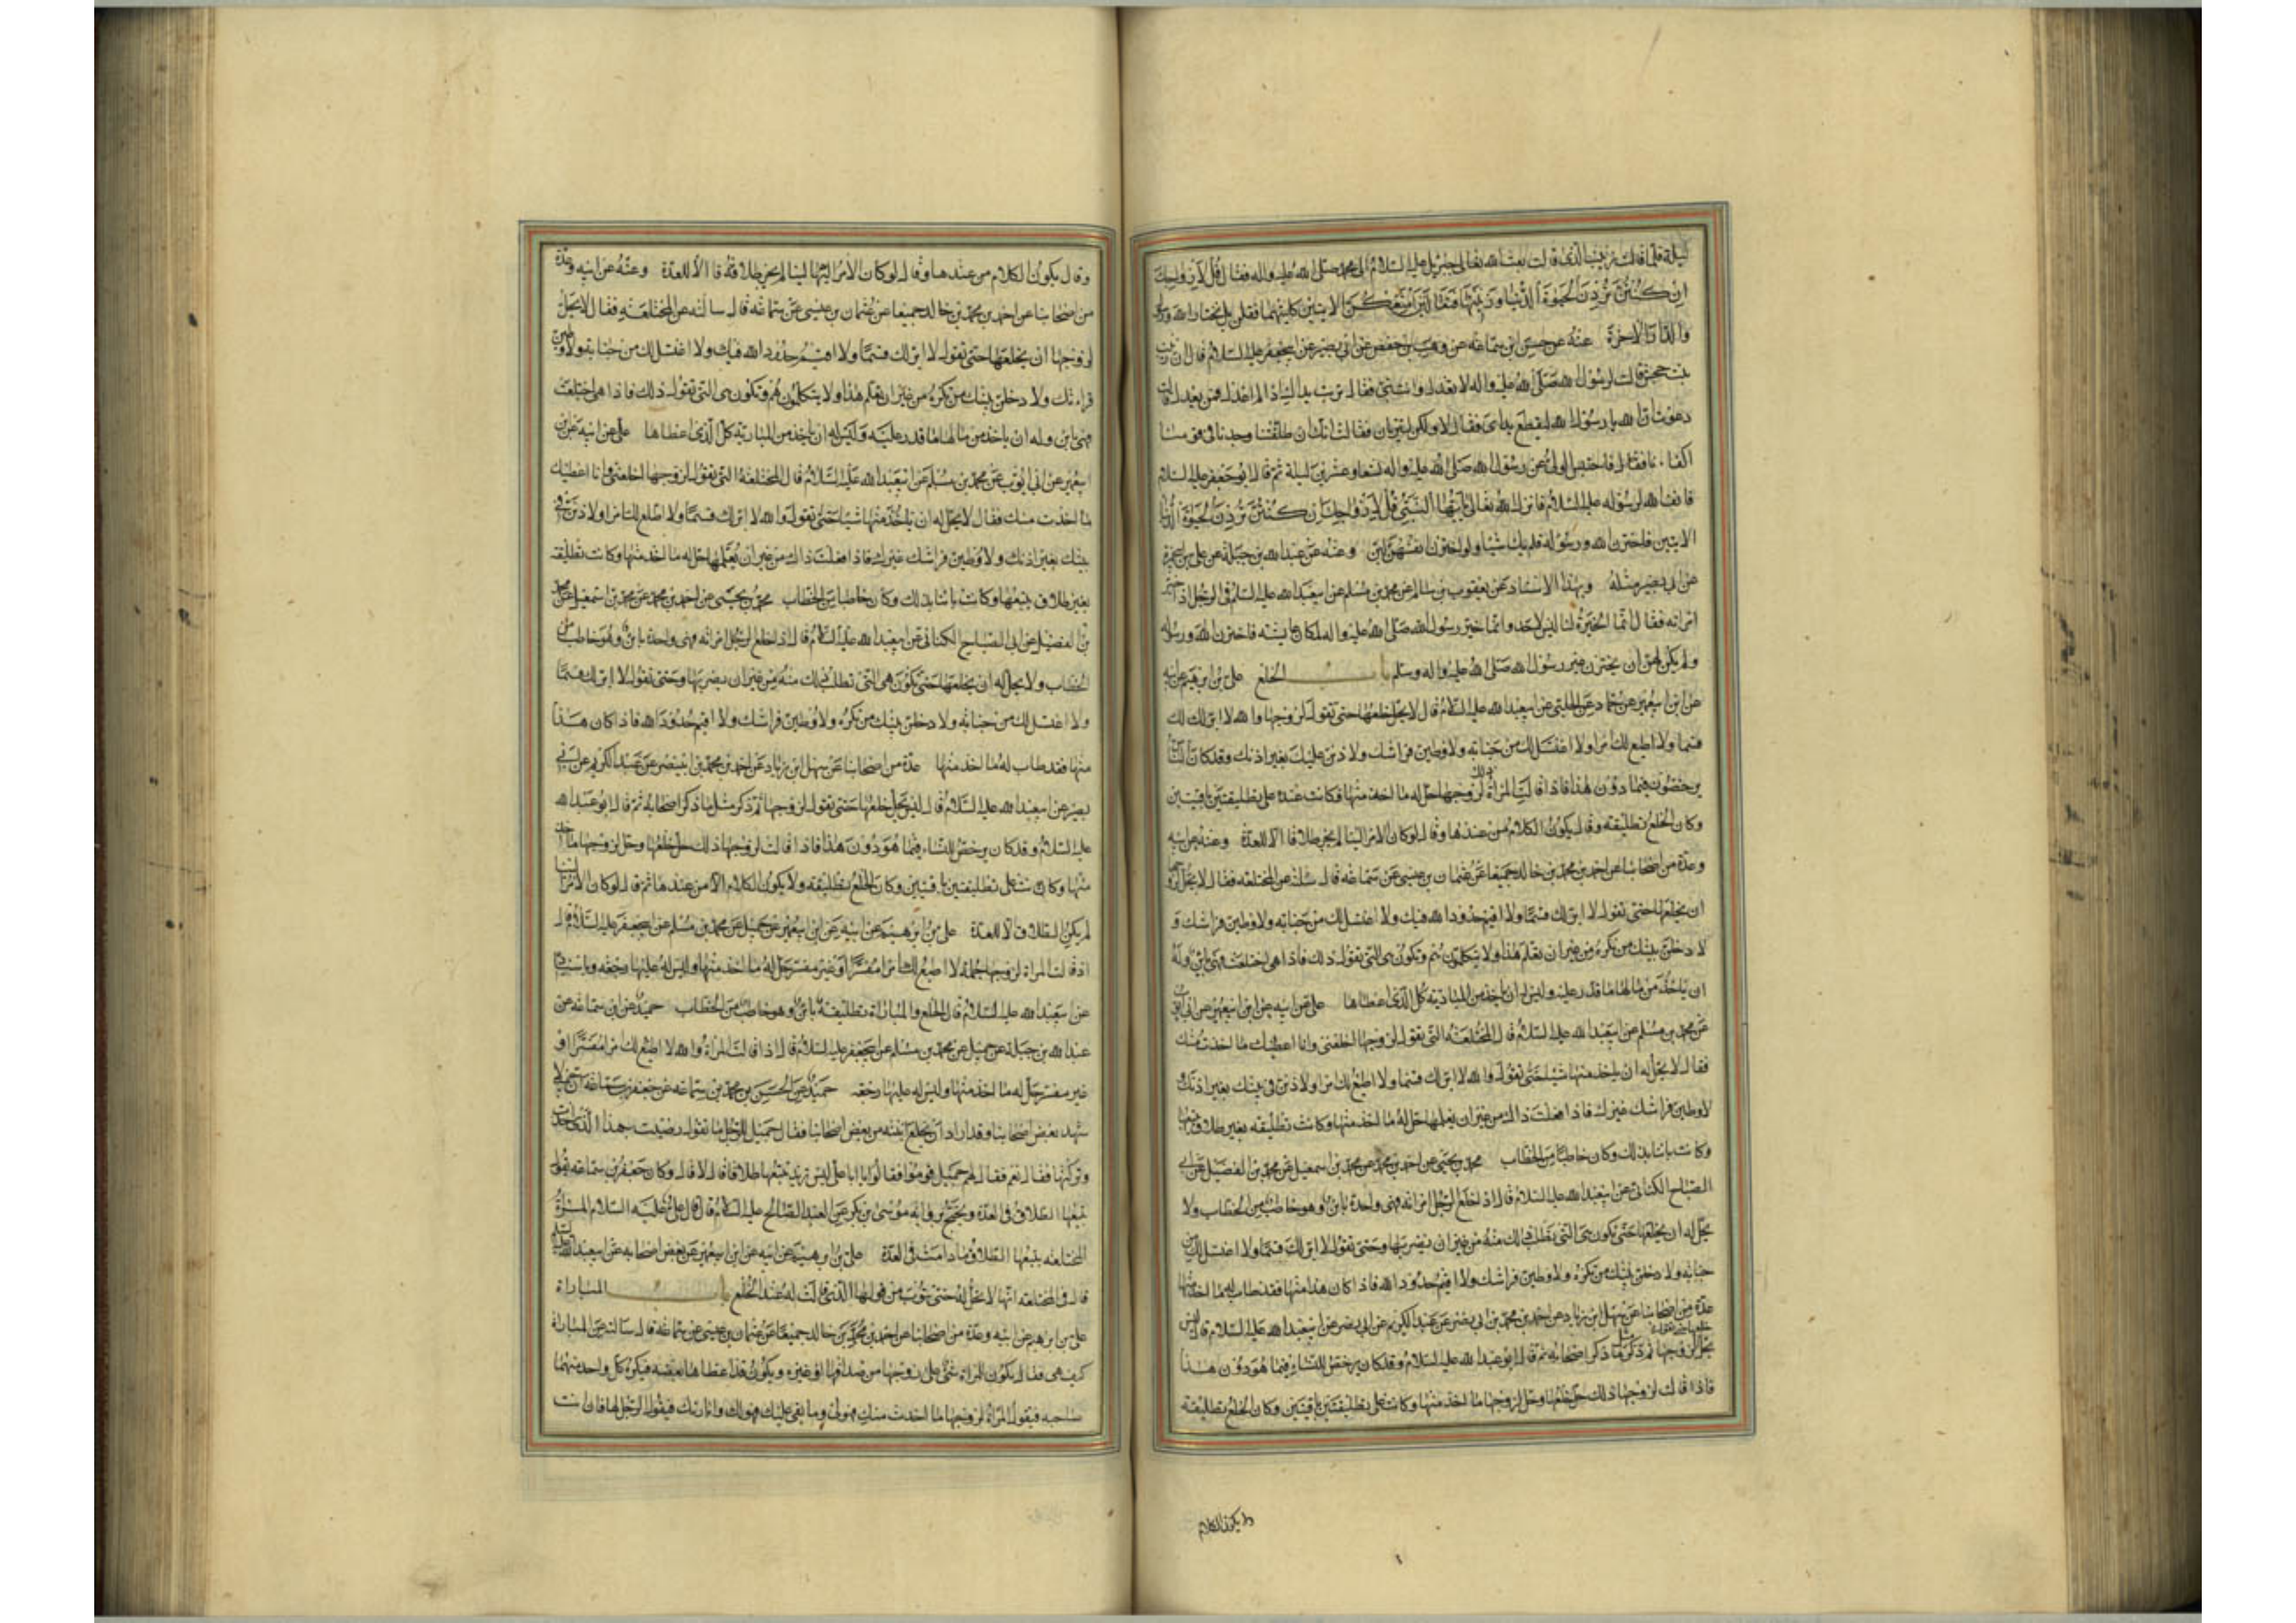 ليلة قلت فما قالت زينب الذى قالت بعث الله تعالى جبرئيل عليه السلام الى محمد صلى الله عليه واله فقال قل لازواجك
ان كنتن تردن الحيوة الدنيا وزينتها فتعالين امتعكن الايتين كلتيهما فقلن بل نختار الله ورسوله
والدار الاخرة عنه عن حسن بن سماعة عن وهيب بن حفص عن ابى بصير عن ابى جعفر عليه السلام قال ان زينب
بنت جحش قالت لرسول الله صلى الله عليه واله لا تعدل وانت نبى فقال تربت يداك اذا لم اعدل فمن يعدل قالت
دعوت الله يا رسول الله ليقطع يداى فقال لا ولكن لتتربان فقالت انك ان طلقتنا وجدنا فى قومنا
اكفاءنا فاحتبس الوحى عن رسول الله صلى الله عليه واله تسعا وعشرين ليلة ثم قال ابو جعفر عليه السلام
فانف الله لرسوله عليه السلام فانزل الله تعالى يا ايها النبى قل لازواجك ان كنتن تردن الحيوة الدنيا
الايتين فاخترن الله ورسوله فلم يك شيئا ولو اخترن انفسهن لبن وعنه عن عبد الله بن جبلة عن على بن ابى حمزة
عن ابى بصير مثله وبهذا الاسناد عن يعقوب بن سالم عن محمد بن مسلم عن ابى عبد الله عليه السلام فى الرجل اذا خير
امراته فقال انما الخيرة لنا ليس لاحد وانما خير رسول الله صلى الله عليه واله لمكان عايشة فاخترن الله ورسوله
ولم يكن لهن ان يخترن غير رسول الله صلى الله عليه واله وسلم باب الخلع على بن ابرهيم عن ابيه
عن ابن ابى عمير عن حماد عن الحلبى عن ابى عبد الله عليه السلام قال لا يحل خلعها حتى تقول لزوجها والله لا ابر لك
قسما ولا اطيع لك امرا ولا اغتسل لك من جنابة ولاوطين فراشك ولاذنن عليك بغير اذنك وقد كان الناس
يرخصون فيما دون هذا فاذا قالت المراة ذلك لزوجها حل له ما اخذ منها فكانت عنده على تطليقتين باقيتين
وكان الخلع تطليقة وقال يكون الكلام من عندها وقال لو كان الامر الينا لم نجز طلاقا الا للعدة وعنه عن ابيه
وعدة من اصحابنا عن احمد بن محمد بن خالد جميعا عن عثمان بن عيسى عن سماعة قال سالته عن المختلعة فقال لا يحل لزوجها
ان يخلعها حتى تقول لا ابر لك قسما ولا اقيم حدود الله فيك ولا اغتسل لك من جنابة ولاوطين فراشك و
لادخلن بيتك من تكره من غير ان تعلم هذا ولا يتكلمون هم وتكون هى التى تقول ذلك فاذا هى اختلعت فهى باين وله
ان ياخذ من مالها ما قدر عليه وليس له ان ياخذ من المبارية كل الذى اعطاها على عن ابيه عن ابن ابى عمير عن ابى ايوب
عن محمد بن مسلم عن ابى عبد الله عليه السلام قال المختلعة التى تقول لزوجها اخلعنى وانا اعطيك ما اخذت منك
فقال لا يحل له ان ياخذ منها شيئا حتى تقول والله لا ابر لك قسما ولا اطيع لك امرا ولاذنن فى بيتك بغير اذنك و
لاوطين فراشك غيرك فاذا فعلت ذلك من غير ان يعلمها حل له ما اخذ منها وكانت تطليقة بغير طلاق يتبعها
وكانت باينا بذلك وكان خاطبا من الخطاب محمد بن يحيى عن احمد بن محمد عن محمد بن اسمعيل عن محمد بن الفضيل عن ابى
الصباح الكنانى عن ابى عبد الله عليه السلام قال اذا خلع الرجل امراته فهى واحدة باين وهو خاطب من الخطاب ولا
يحل له ان يخلعها حتى تكون هى التى تطلب ذلك منه من غير ان يضربها وحتى تقول لا ابر لك قسما ولا اغتسل لك من
جنابة ولادخلن بيتك من تكره ولاوطين فراشك ولا اقيم حدود الله فاذا كان هذا منها فقد طاب له ما اخذ منها
عدة من اصحابنا عن سهل بن زياد عن احمد بن محمد بن ابى نصر عن عبد الكريم عن ابى بصير عن ابى عبد الله عليه السلام قال ليس
يحل خلعها حتى تقول لزوجها ثم ذكر مثل ما ذكر اصحابه ثم قال ابو عبد الله عليه السلام وقد كان يرخص للنساء فيما هو دون هذا
فاذا قالت لزوجها ذلك حل خلعها وحل لزوجها ما اخذ منها وكانت على تطليقتين باقيتين وكان الخلع تطليقة
ولا يكون الكلام
وقال يكون الكلام من عندها وقال لو كان الامر اليها لينا لم يجز طلاقه قا الا للعدة وعنه عن ابيه وعدة
من اصحابنا عن احمد بن محمد بن خالد جميعا عن عثمان بن عيسى عن سماعة قال سالته عن المختلعة فقال لا يحل
لزوجها ان يخلعها حتى تقول لا ابر لك قسما ولا اقيم حدود الله فيك ولا اغتسل لك من جنابة ولاوطين
فراشك ولادخلن بيتك من تكره من غير ان تعلم هذا ولا يتكلمون هم وتكون هى التى تقول ذلك فاذا هى اختلعت
فهى باين وله ان ياخذ من مالها ما قدر عليه وليس له ان ياخذ من المبارية كل الذى اعطاها على عن ابيه عن ابن
ابى عمير عن ابى ايوب عن محمد بن مسلم عن ابى عبد الله عليه السلام قال المختلعة التى تقول لزوجها اخلعنى وانا اعطيك
ما اخذت منك فقال لا يحل له ان ياخذ منها شيئا حتى تقول والله لا ابر لك قسما ولا اطيع لك امرا ولاذنن فى
بيتك بغير اذنك ولاوطين فراشك غيرك فاذا فعلت ذلك من غير ان يعلمها حل له ما اخذ منها وكانت تطليقة
بغير طلاق يتبعها وكانت باينا بذلك وكان خاطبا من الخطاب محمد بن يحيى عن احمد بن محمد عن محمد بن اسمعيل عن محمد
بن الفضيل عن ابى الصباح الكنانى عن ابى عبد الله عليه السلام قال اذا خلع الرجل امراته فهى واحدة باين وهو خاطب من
الخطاب ولا يحل له ان يخلعها حتى تكون هى التى تطلب ذلك منه من غير ان يضربها وحتى تقول لا ابر لك قسما
ولا اغتسل لك من جنابة ولادخلن بيتك من تكره ولاوطين فراشك ولا اقيم حدود الله فاذا كان هذا
منها فقد طاب له ما اخذ منها عدة من اصحابنا عن سهل ابن زياد عن احمد بن محمد بن ابى نصر عن عبد الكريم عن ابى
بصير عن ابى عبد الله عليه السلام قال ليس يحل خلعها حتى تقول لزوجها ثم ذكر مثل ما ذكر اصحابه ثم قال ابو عبد الله
عليه السلام وقد كان يرخص للنساء فيما هو دون هذا فاذا قالت لزوجها ذلك حل خلعها وحل لزوجها ما اخذ
منها وكانت على تطليقتين باقيتين وكان الخلع تطليقة ولا يكون الكلام الا من عندها ثم قال لو كان الامر الينا
لم يكن الطلاق الا للعدة على بن ابرهيم عن ابيه عن ابن ابى عمير عن جميل عن محمد بن مسلم عن ابى جعفر عليه السلام قال
اذا قالت المراة لزوجها جملة لا اطيع لك امرا مفسرا او غير مفسر حل له ما اخذ منها وليس له عليها رجعة وباسناده
عن ابى عبد الله عليه السلام قال الخلع والمباراة تطليقة باين وهو خاطب من الخطاب حميد عن ابن سماعة عن
عبد الله بن جبلة عن جميل عن محمد بن مسلم عن ابى جعفر عليه السلام قال اذا قالت المراة والله لا اطيع لك امرا مفسرا او
غير مفسر حل له ما اخذ منها وليس له عليها رجعة حميد عن الحسن بن محمد بن سماعة عن جعفر بن سماعة ان جميلا
شهد بعض اصحابنا وقد اراد ان يخلع ابنته من بعض اصحابنا فقال جميل للرجل ما تقول رضيت بهذا الذى اخذت
وتركتها فقال نعم فقال لهم جميل قوموا فقالوا يا ابا على ليس تريد يتبعها طلاقا قال لا قال وكان جعفر بن سماعة يقول
يتبعها الطلاق فى العدة ويحتج برواية موسى بن بكر عن العبد الصالح عليه السلام قال قال على عليه السلام
المختلعة يتبعها الطلاق ما دامت فى العدة على بن ابرهيم عن ابيه عن ابن ابى عمير عن بعض اصحابه عن ابى عبد الله عليه السلام
قال فى المختلعة انها لا تحل له حتى تتوب من قولها الذى قالت له عند الخلع باب المباراة
على بن ابرهيم عن ابيه وعدة من اصحابنا عن احمد بن محمد بن خالد جميعا عن عثمان بن عيسى عن سماعة قال سالته عن المباراة
كيف هى فقال يكون للمراة شئ على زوجها من صداقها او غيره ويكون قد اعطاها بعضه فيكره كل واحد منهما
صاحبه فيقول المراة لزوجها ما اخذت منك فهو لى وما بقى عليك فهو لك وابارئك فيقول الرجل لها فان انت